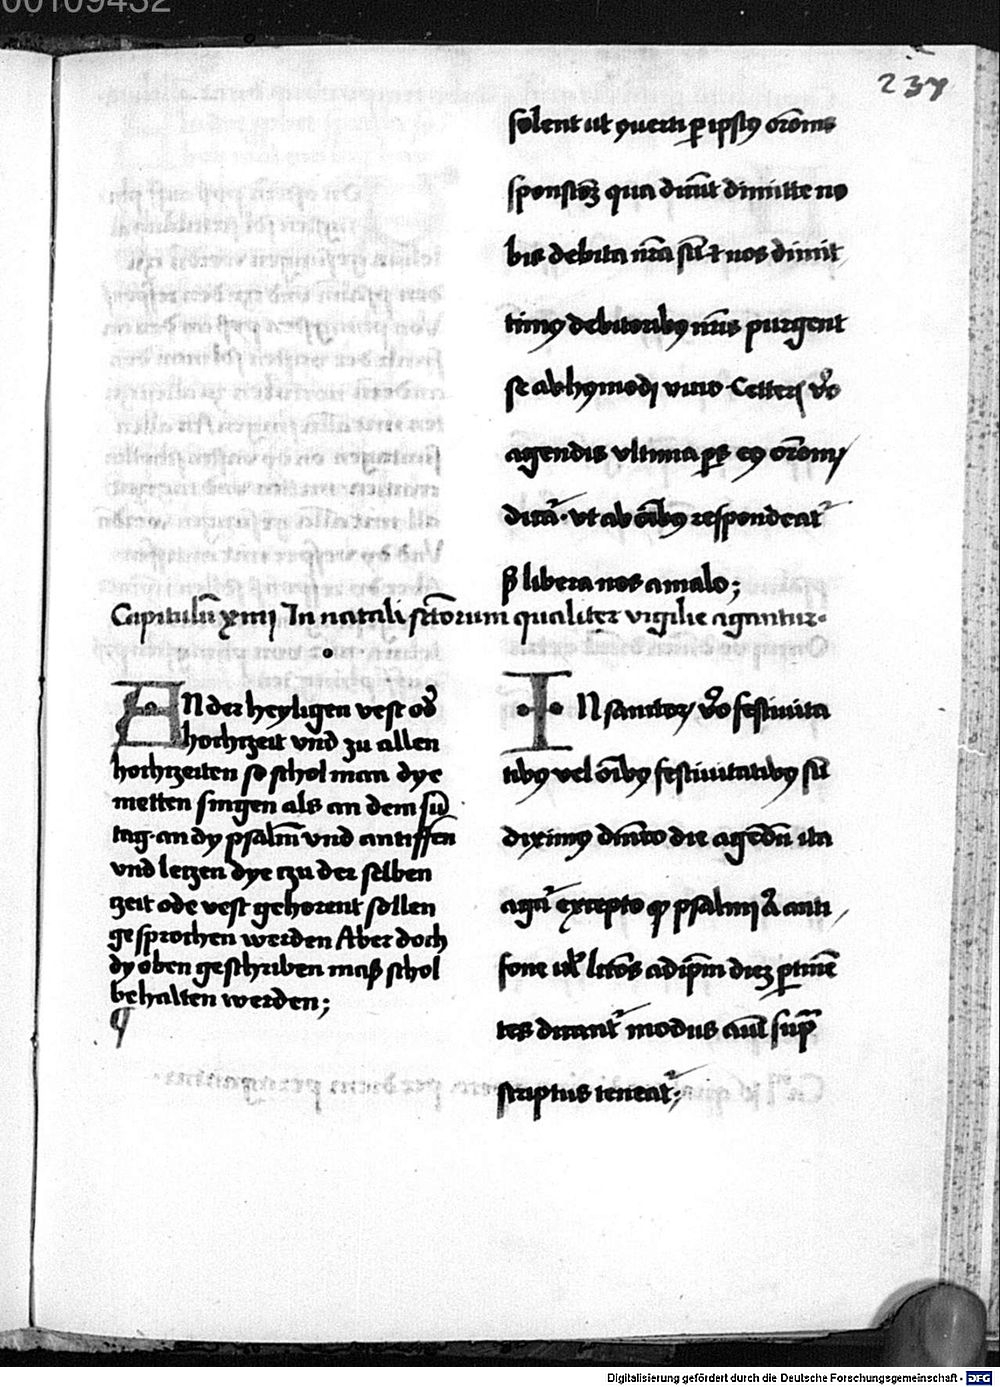 00109432
237
solent ut ꝯuerti ꝑ ipsiꝯ or̄onis
sponsioꝫ qua dicūt dimitte no
bis debita nr̄a sic̄ ⁊ nos dimit
timꝯ debitoribꝯ nr̄is purgent
se ab hꝯmodi vicio Ceteris vͦo
agendis vltima ꝑs eꝯ or̄onis
dicat᷑ · vt ab oībꝯ respondeat᷑
sꝫ libera nos a malo ;
Capitulū xiiij In natali sc̄torum qualiter vigilie agantur ·
AN der heyligen vest od̕
hochtzeit vnd zu allen
hochtzeiten so schol man dye
metten singen als an dem sū
tag · an dy psalm̄ vnd antiffen
vnd letzen dye tzu der selben
tzeit ode vest gehorent sollen
gesprochen werden Aber doch
dy oben geschriben maß schol
behalten werden ;
IN sanctoꝝ vͦo festiuita
tibꝯ vel oībꝯ festiuitatibꝯ sic̄
diximꝯ dn̄ico die agendū ita
agat᷑ excepto ꝙ psalmi aut anti
fone vel lcōes ad ip̄m diem ꝑtinē
tes dicant᷑ modus aūt sup̄
scriptus teneat᷑ ;
Digitalisierung gefördert durch die Deutsche Forschungsgemeinschaft - DFG